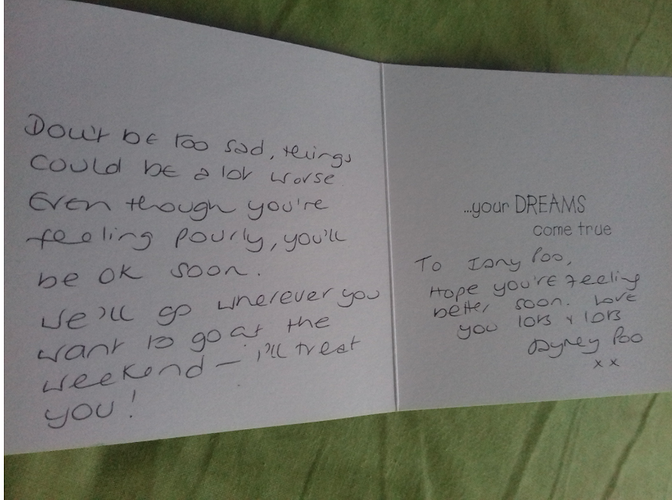 Don't be too sad, things
could be a lot worse
Even though you're
feeling pourly, you'll
be ok soon.
We'll go wherever you
want to go at the
weekend – i'll treat
you!
...your DREAMS
come true
To Poo,
Hope you're feeling
better soon. Love
you lots & lots
Poo
x x